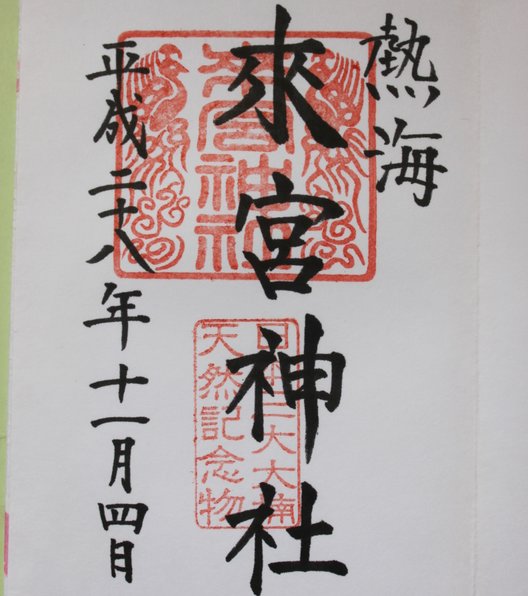 熱海
來宮神社
平成二十八年十一月四日
來宮神社
日本三大大楠
天然記念物